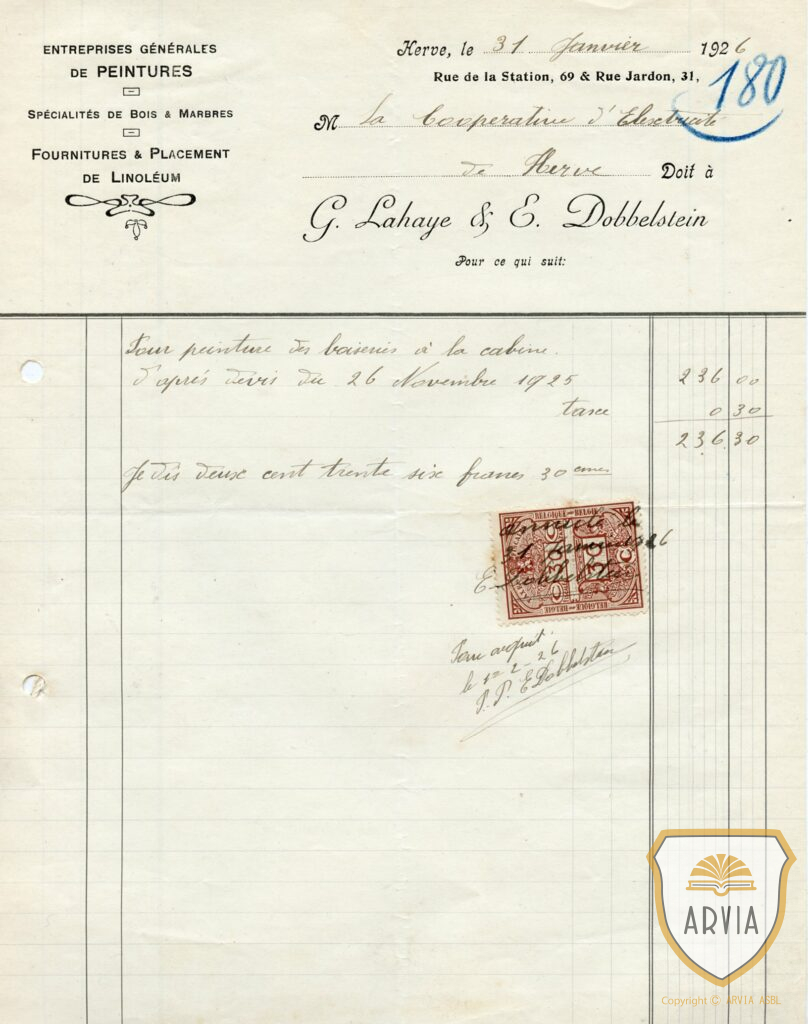 ENTREPRISES GÉNÉRALES
DE PEINTURES
SPÉCIALITÉS DE BOIS & MARBRES
FOURNITURES & PLACEMENT
DE LINOLÉUM
Herve, le 31 Janvier 1926
Rue de la Station, 69 & Rue Jardon, 31,
180
M La Cooperative d'Electricité
de Herve Doit à
G. Lahaye & E. Dobbelstein
Pour ce qui suit:
Pour peinture des boiseries à la cabine.
d'aprés devis du 26 Novembre 1925 236 00
taxe 0 30
236,30
Je dis deux cent trente six francs 30 cmes
BELGIQUE BELGIE
30 C
BELGIE BELGIQUE
Annulé le
31 Janvier 1926
E Dobbelstein
Pour acquit.
le 1-2-26
P.P. E Dobbelstein
ARVIA
Copyright © ARVIA ASBL